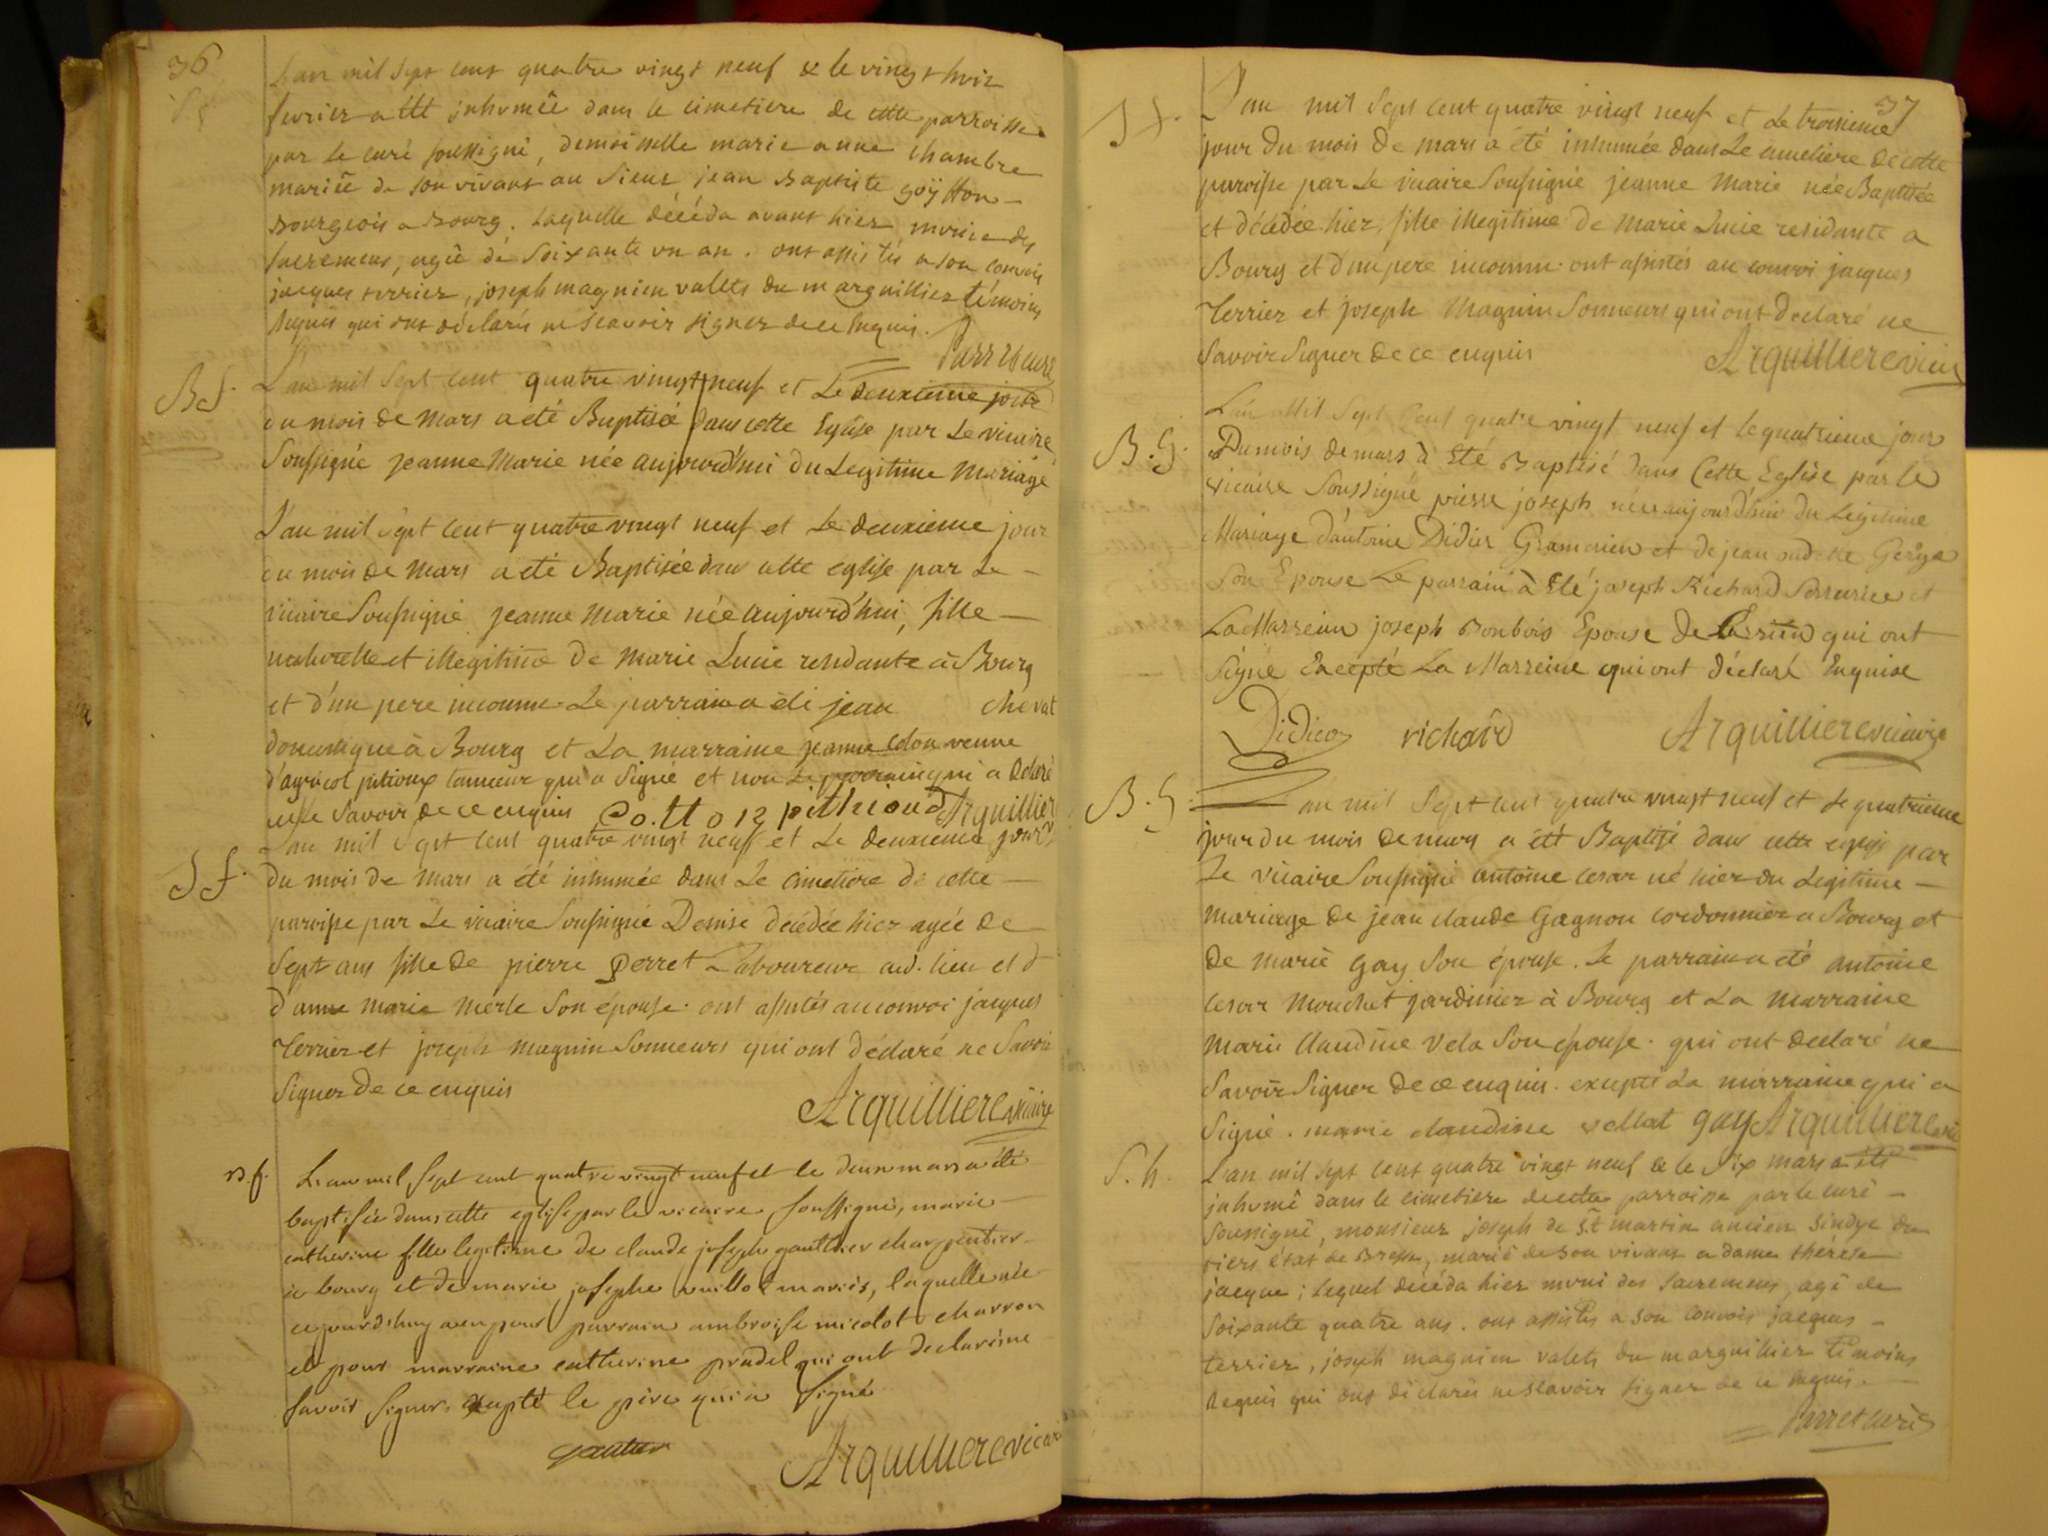 36
L'an mil sept cent quatre vingt neuf & le vingt huit
fevrier a été inhumée dans le cimetiere de cette parroisse
par le curé soussigné, demoiselle marie anne chambre
mariée de son vivant au sieur jean Baptiste goÿffon
Bourgeois a Bourg. laquelle décéda avant hier munie des
sacremens, agée de soixante un an. ont assistés a son convoi
jacques terrier, joseph magnien valets du marguillier témoins
requis qui ont déclarés ne scavoir signer de ce enquis.
B f.
L'an mil sept cent quatre vingt neuf et Le deuxieme jour
du mois de Mars a été Baptisée dans cette Eglise par Le vicaire
Soussigné jeanne Marie née aujourd'hui du Legitime Mariage
L'an mil sept cent quatre vingt neuf et Le deuxieme jour
du mois de Mars a été Baptisée dans cette église par Le
vicaire Soussigné jeanne Marie née aujourd'hui, fille
naturelle et illegitime de Marie Lucie residante à Bourg
et d'un pere inconnu Le parrain a été jean chevat
domestique à Bourg et La marraine jeanne veuve
d'agricol tanneur qui a signé et non Le parrain qui a declaré
ne le Savoir de ce enquis Co.tt o 12 pithioud Arquilliere
L'an mil Sept cent quatre vingt neuf et Le deuxieme jour
S f.
du mois de Mars a été inhumée dans Le cimetiere de cette
paroisse par Le vicaire Soussigné Denise décédée hier agée de
Sept ans fille de pierre perret Laboureur au d. lieu et d
d'anne marie Merle Son épouse. ont assistés au convoi jacques
Terrier et joseph magnin Sonneurs qui ont déclaré ne Savoir
Signer de ce enquis
Arquilliere vicaire
B. f.
L'an mil sept cent quatre vingt neuf et le deux mars a été
baptisée dans cette eglise par le vicaire soussigné, marie
catherine fille legitime de claude joseph gauthier charpentier
à bourg et de marie josephe mariés, laquelle née
cejourd'huy a eu pour parrain ambroise micolot charron
et pour marraine catherine pradel qui ont declaré ne
savoir signer, excepté le père qui a signé
gautier
Arquilliere vicaire
37
S f.
L'an mil Sept cent quatre vingt neuf et Le troisieme
jour du mois de mars a été inhumée dans Le cimetiere de cette
paroisse par Le vicaire Soussigné jeanne Marie née Baptisée
et décédée hier, fille illegitime de Marie Lucie residante a
Bourg et d'un pere inconnu. ont assistés au convoi jacques
Terrier et joseph Magnin Sonneurs qui ont declaré ne
Savoir Signer de ce enquis Arquilliere vicaire
L'an Mil Sept Cent quatre vingt neuf et le quatrieme jour
B. G.
Du mois de mars à Eté Baptisé dans Cette Eglise par le
vicaire Soussigné pierre joseph né aujourd'hui du Legitime
Mariage d'antoine Didier et de
Son Epouse Le parrain à Eté joseph Richard Serrurier et
La Marreine joseph Bonbois Epouse de qui ont
Signé Excepté La Marreine qui ont déclaré Enquise
Didier richard Arquilliere vicaire
B. G.
L'an mil Sept cent quatre vingt neuf et Le quatrieme
jour du mois de mars a été Baptisé dans cette eglise par
Le vicaire Soussigné antoine cesar né hier du Legitime
mariage de jean claude Gagnon cordonnier a Bourg et
de marie gay Son épouse. Le parrain a été antoine
cesar Mouchet jardinier à Bourg et La marraine
marie Claudine Vela Son épouse. qui ont declaré ne
Savoir Signer de ce enquis. excepté La marraine qui a
Signé. marie claudine vellat gay Arquilliere vic
S. h.
L'an mil sept cent quatre vingt neuf & le six mars a été
inhumé dans le cimetiere de cette parroisse par le curé
soussigné, monsieur joseph de st martin ancien sindyc du
tiers état de Bresse, marié de son vivant a dame thérese
jacque; lequel décéda hier muni des sacremens, agé de
soixante quatre ans. ont assistés a son convois jacques
terrier, joseph magnien valets du marguillier témoins
requis qui ont déclarés ne scavoir signer de ce enquis.
Parret curé